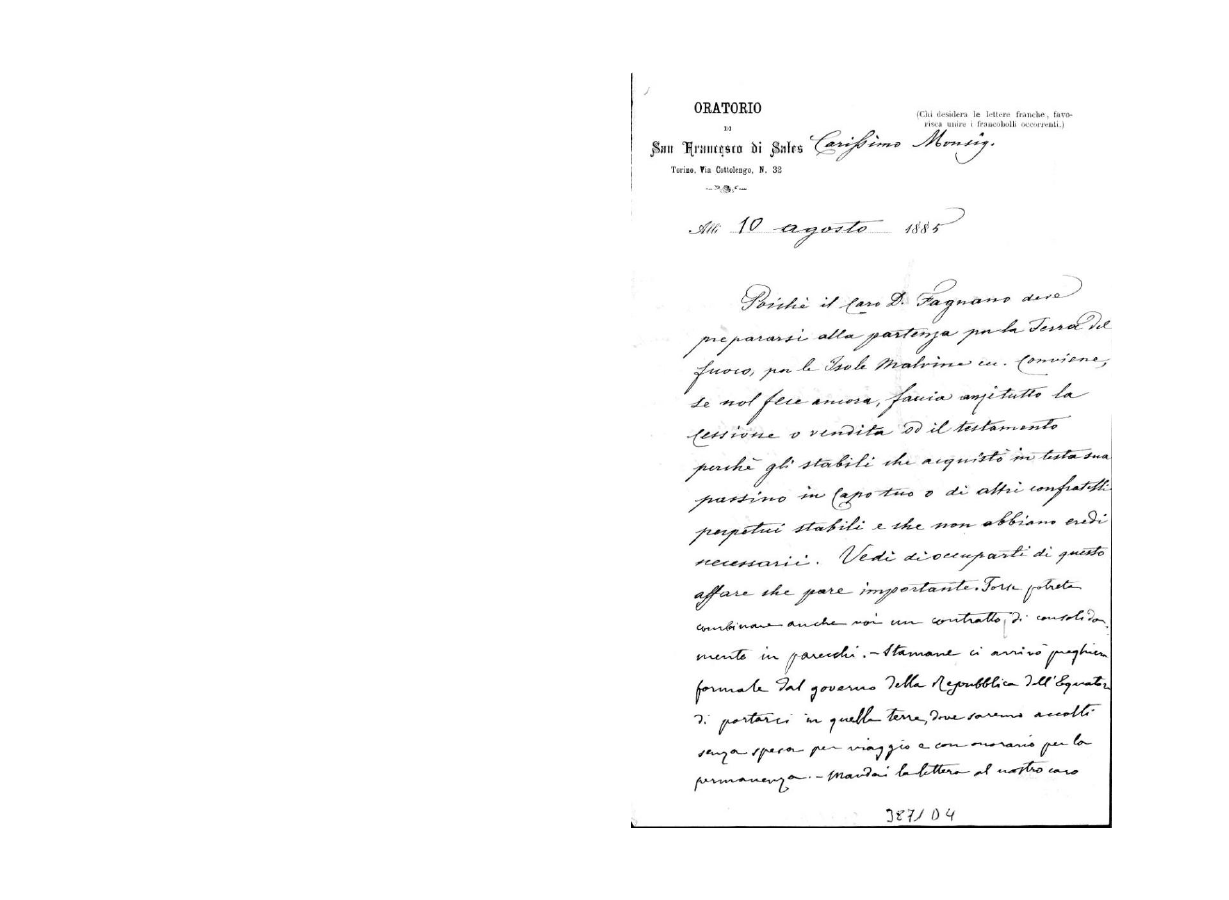 ORATORIO
DI
San Francesco di Sales
Torino, Via Cottolengo, N. 32
(Chi desidera le lettere franche, favo-
risca unire i francobolli occorrenti.)
Carissimo Monsig.
Alli 10 agosto 1885
Poichè il caro D. Fagnano deve
prepararsi alla partenza per la Terra del
fuoco, per le Isole Malvine ecc. Conviene,
se nol fece ancora, faccia anzitutto la
cessione o vendita od il testamento
perchè gli stabili che acquistò in testa sua
passino in capo tuo o di altri confratelli
perpetui stabili e che non abbiano eredi
necessarii. Vedi di occuparti di questo
affare che pare importante. Forse potrete
combinare anche voi un contratto di consolida-
mento in parecchi. - Stamane ci arrivò preghiera
formale dal governo della Repubblica dell'Equatore
di portarci in quelle terre, dove saremo accolti
senza spesa per viaggio e con onorario per la
permanenza. - Mandai la lettera al nostro caro
387/ D 4